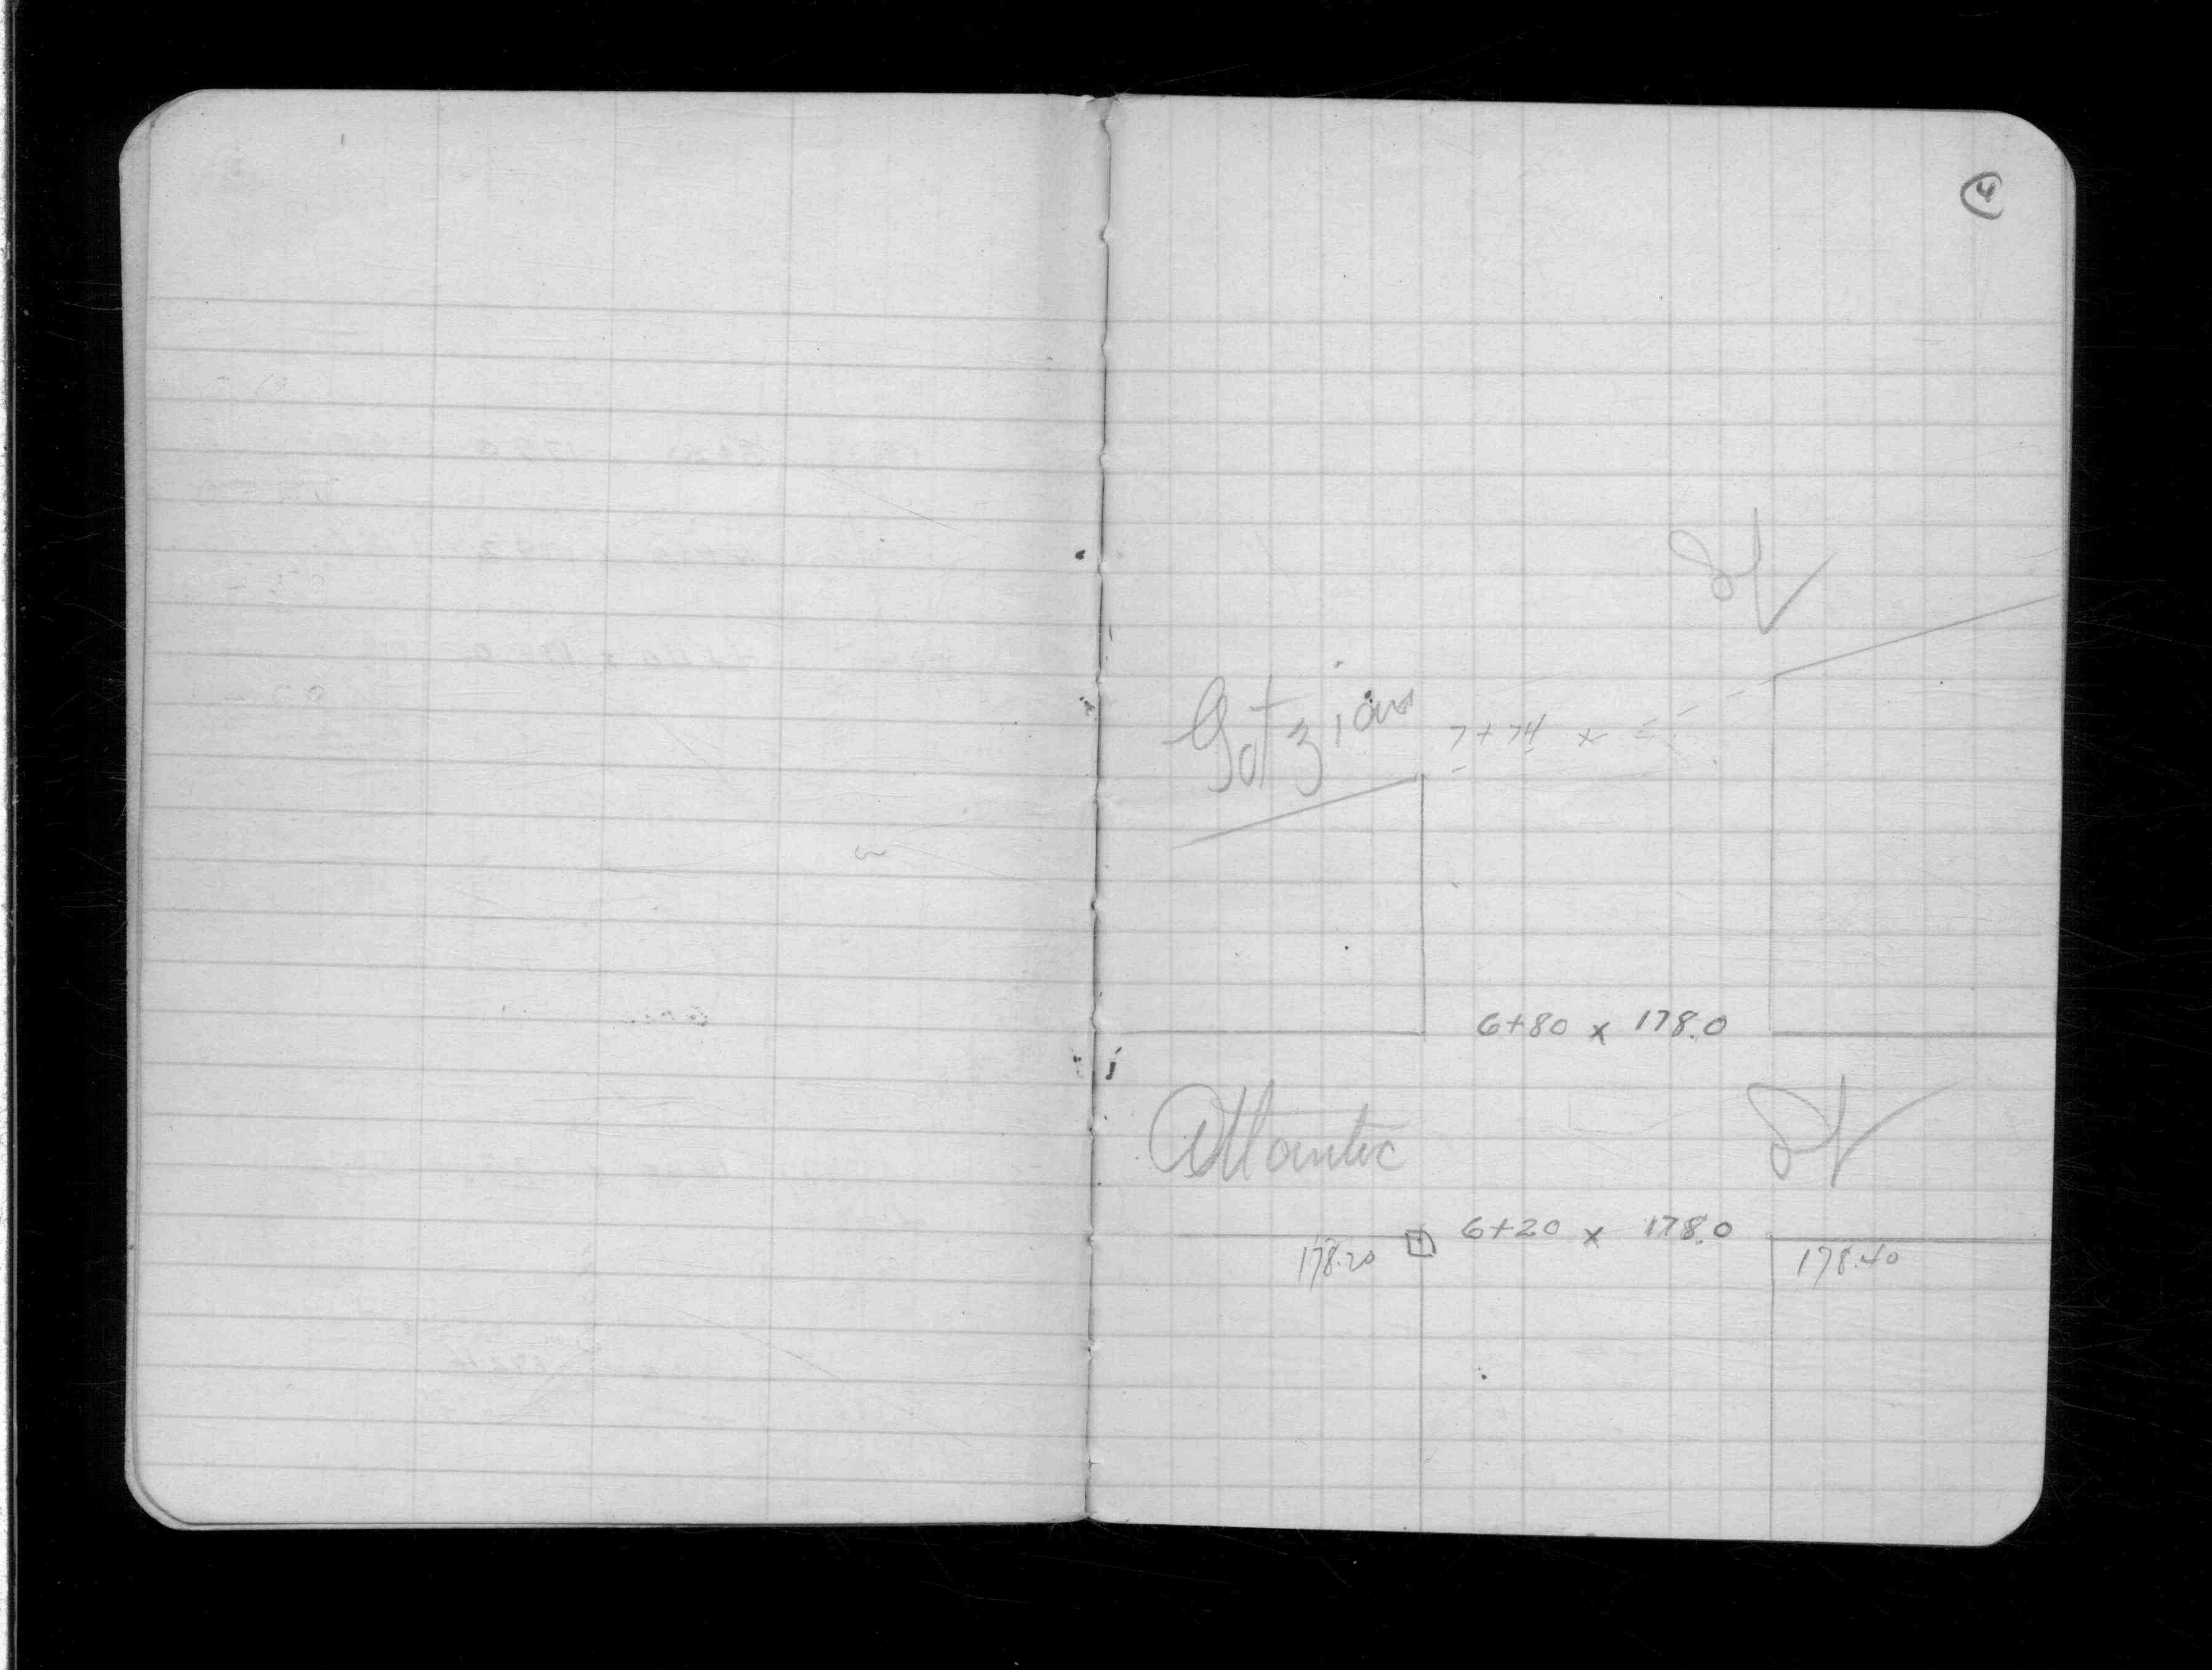 4
St
Gotzian 7+74 x
6+80 x 178.0
Atlantic St
6+20 x 178.0
178.20 178.40